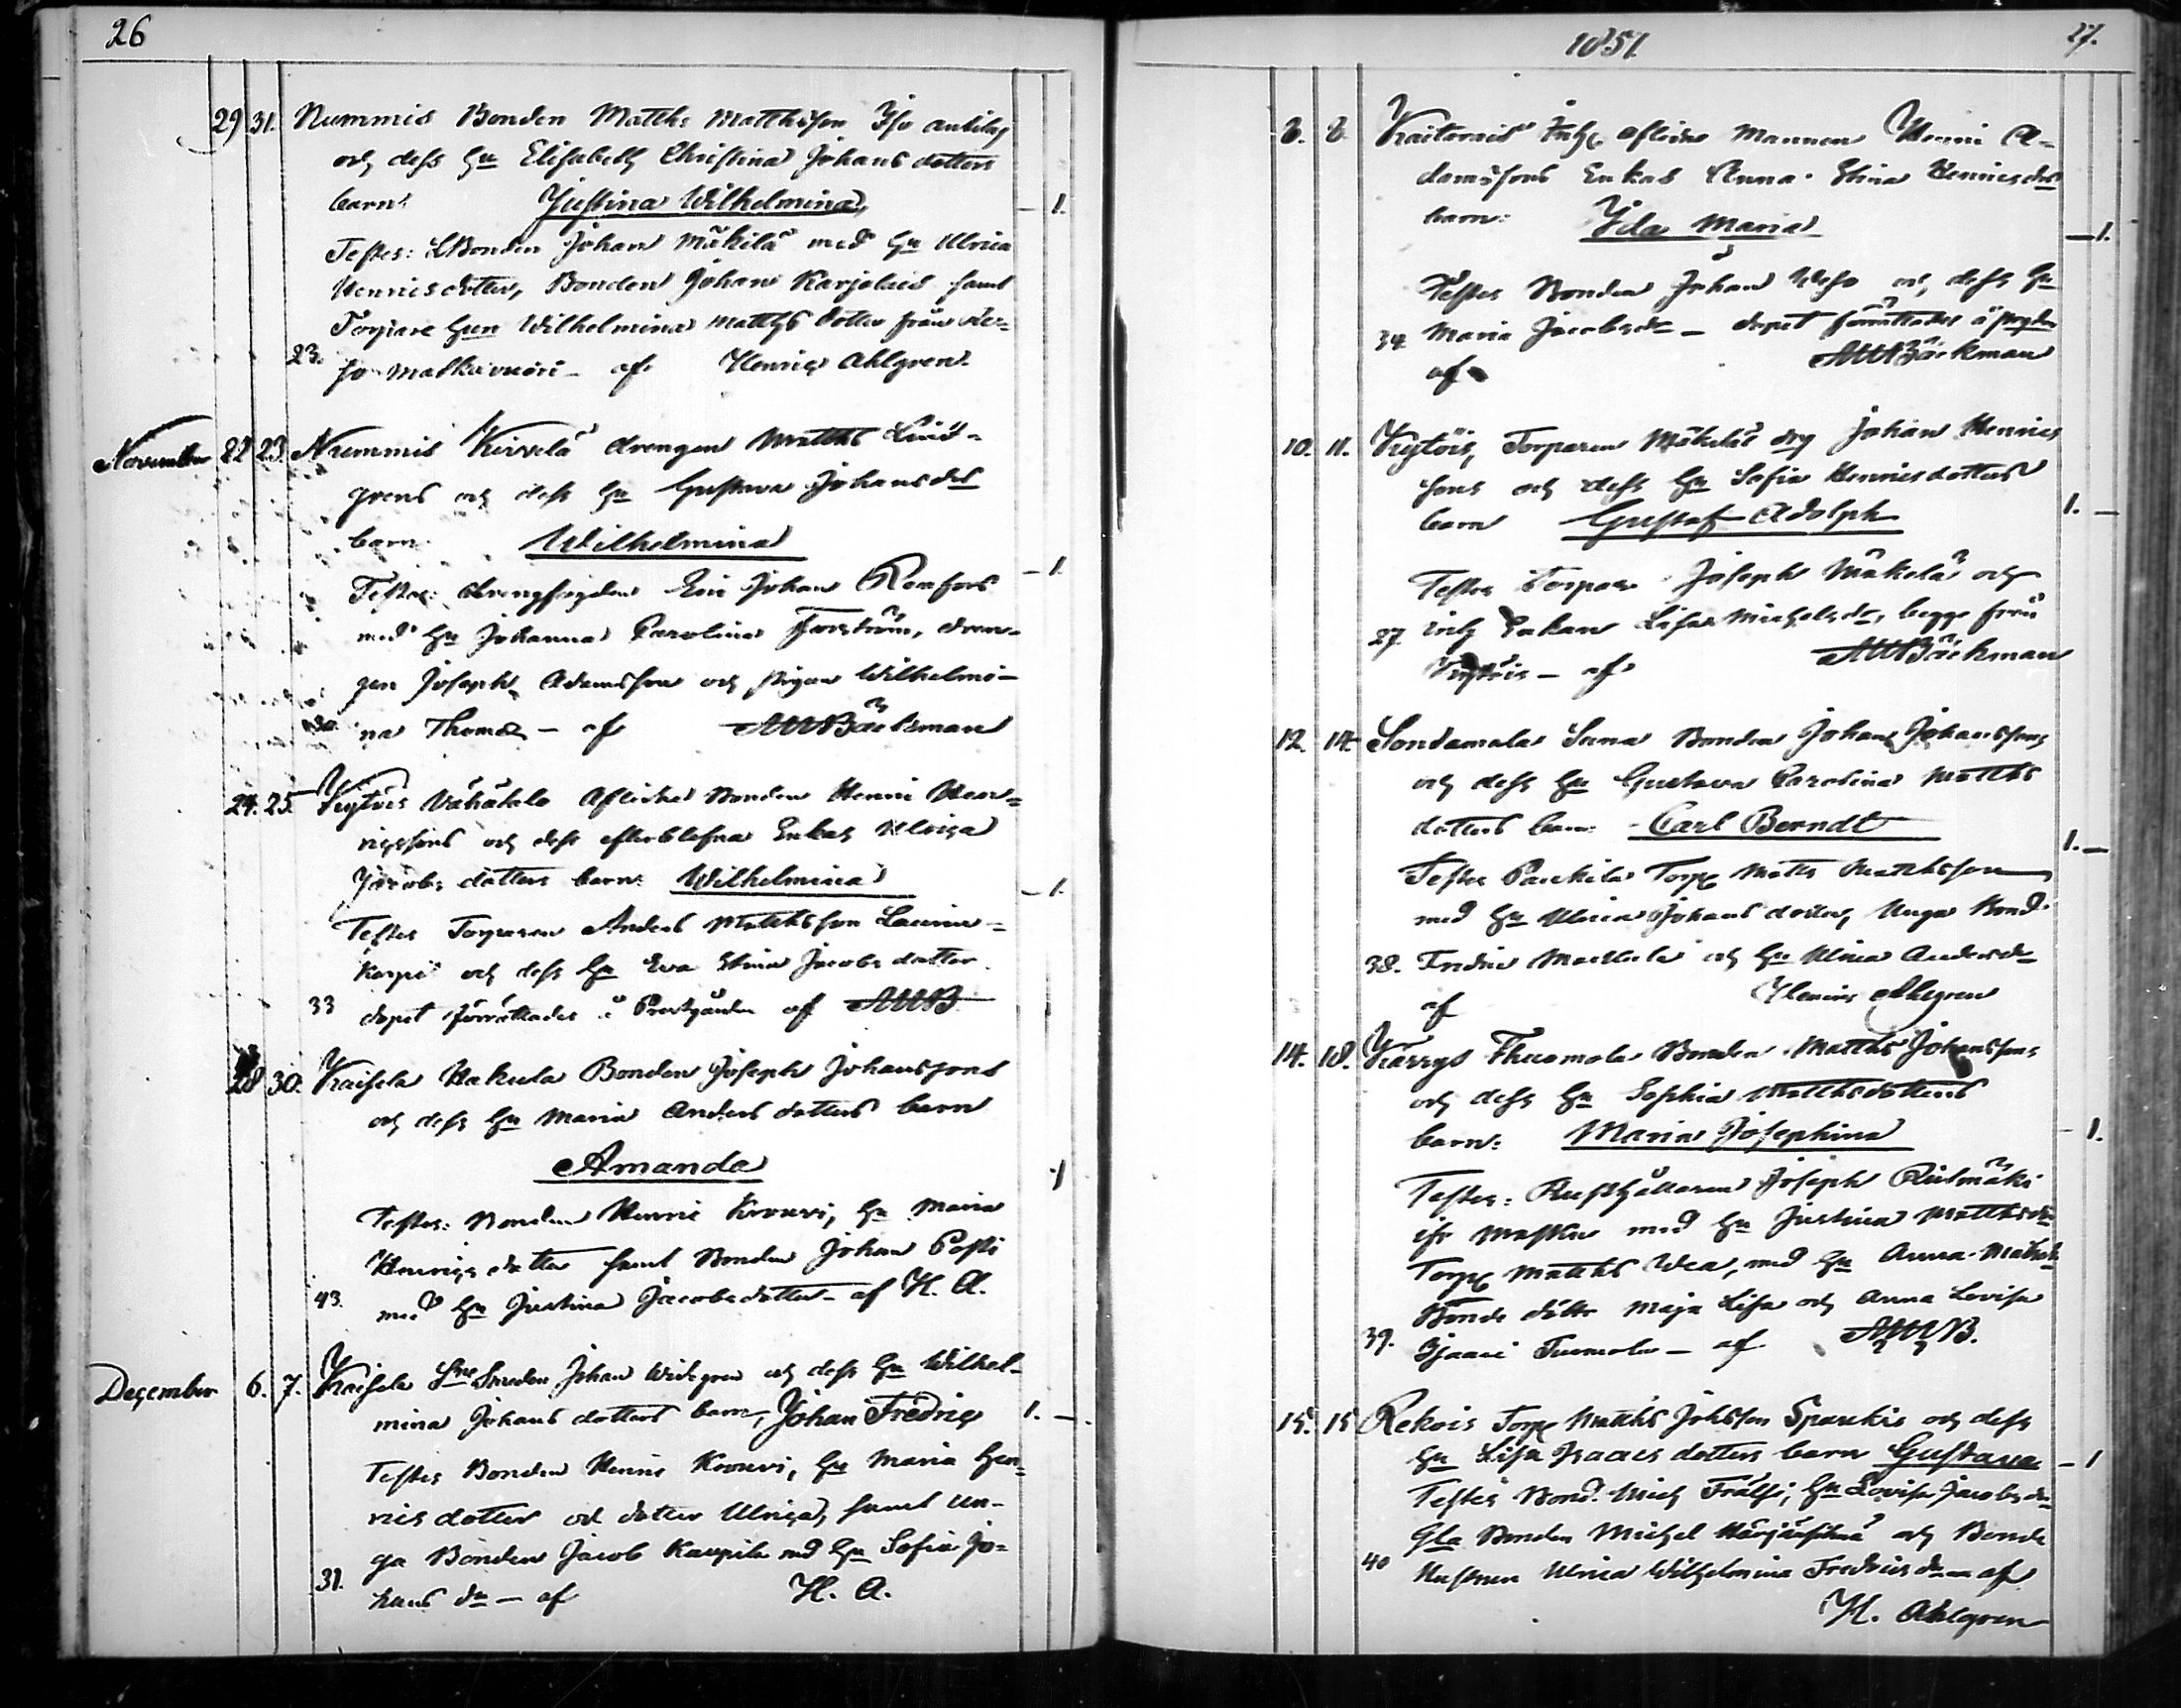 26
29 31. Nummis Bonden Matths Matthsson Iso anttila
och dess Hu Elisabeth Christina Johans dotters
barn: Justina Wilhelmina, — 1.
Testes: Bonden Johan Mäkilä med Hu Ulrica
Henricsdotter, Bonden Johan Karjalais samt
Torpare Hun Wilhelmina Matths dotter från
23. af Henric Ahlgren.
November 22 23. Nummis Kirvelä drengen Matths Lind-
grens och dess Hu Gustava Johansdrs
barn Wilhelmina — 1.
Testes: Eric Johan Renfors
med Hu Johanna Carolina, dren-
gen Joseph Adamsson och pigan Wilhelmi-
30. na Thomædr — af AWBäckman
24. 25. Krytöis Vähätalo Aflidne Bonden Henric Hen-
ricssons och dess efterblefna Enkas Ulrica
Jacobs dotters barn: Wilhelmina — 1.
Testes Torparen Anders Matthsson
och dess Hu Eva Stina Jacobs dotter
33 dopet förrättades i Prestgården af AWB
28 30. Kaisela Hakula Bonden Joseph Johanssons
och dess Hu Maria Anders dotters barn
Amanda 1
Testes: Bonden Henric Krouvi, Hu Maria
Henrics dotter samt Bonden Johan Posti
43. med Hu Justina Jacobsdotter — af H. A.
December 6. 7. Kaisela Smeden Johan Widegren och dess Hu Wilhel-
mina Johans dotters barn, Johan Fredric 1. —
Testes Bonden Henric Krouvi, Hu Maria Hen-
rics dotter och dotter Ulrica, samt un-
ga Bonden Jacob Kaupila med Hu Sofia Jo-
31. hans dr — af H. A.
1851. 27.
8. 8. Inhs aflidne Mannen Henric A-
damssons Enkas Anna Stina Henricsdrs
barn: Ida Maria — 1.
Testes Bonden Johan Uso och dess Hu
34 Maria Jacobsdr — dopet förrättades
af AWBäckman
10. 11. Krytöis, Torparen Mäkeläs Johan Henrics
sons och dess Hu Sofia Henricsdotters
barn Gustaf Adolph 1. —
Testes Torpare Joseph Mäkelä och
27 inhs Enkan Lisa Michelsdr, begge från
Krytöis — af AWBäckman
12. 14 Sondamala Bonden Johan Johanssons
och dess Hu Gustava Carolina Matths
dotters barn: Carl Berndt 1. —
Testes Paukila Torp Matts Matthsson
med Hu Ulrica Johans dotter, Unga Bond.
38. Fredric och Hu Ulrica Andersdr
af Henric Ahlgren
14. 18. Kärrys Thuomola Bonden Matths Johanssons
och dess Hu Sophia Matthsdotters
barn: Maria Josephina — 1.
Testes: Rusthållaren Joseph Riihimäki
ifr Masku med Hu Justina Matthsdr
Torp Matths Wea, med Hu Anna
Bonde döttr Maja Lisa och Anna Lovisa
39. Tuomola — af AWB.
15. 15 Rekois Torp Matths Johsson Spaukis och dess
Hu Lisa Isaacs dotters barn Gustava — 1
Testes Bond. Mich Frälsi, Hu Lovisa Jacobsdr
Gla Bonden Michel Härjänsilmä och Bonde
40 Hustrun Ulrica Wilhelmina Fredricsdr — af
H. Ahlgren